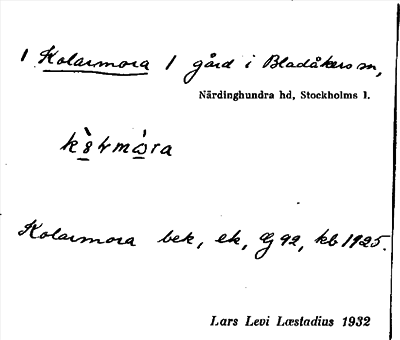 1 Kolarmora 1 gård i Bladåkers sn,
Närdinghundra hd, Stockholms l.
Kolarmora bek, ek, Gg 92, kb 1925.
Lars Levi Læstadius 1932